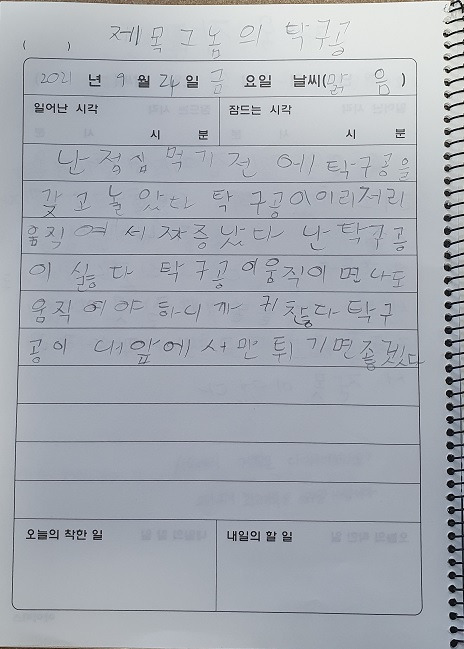 ( ) 제목 그놈의 탁구공
2021 년 9 월 24 일 금 요일 날씨(맑음)
일어난 시각 잠드는 시각
시 분 시 분
난 점심 먹기 전에 탁구공을
갖고 놀았다 탁구공이 이리저리
움직여서 짜증났다 난 탁구공
이 싫다 탁구공이 움직이면 나도
움직여야 하니까 귀찮다 탁구
공이 내 앞에서만 튀기면 좋겠다
오늘의 착한 일 내일의 할 일